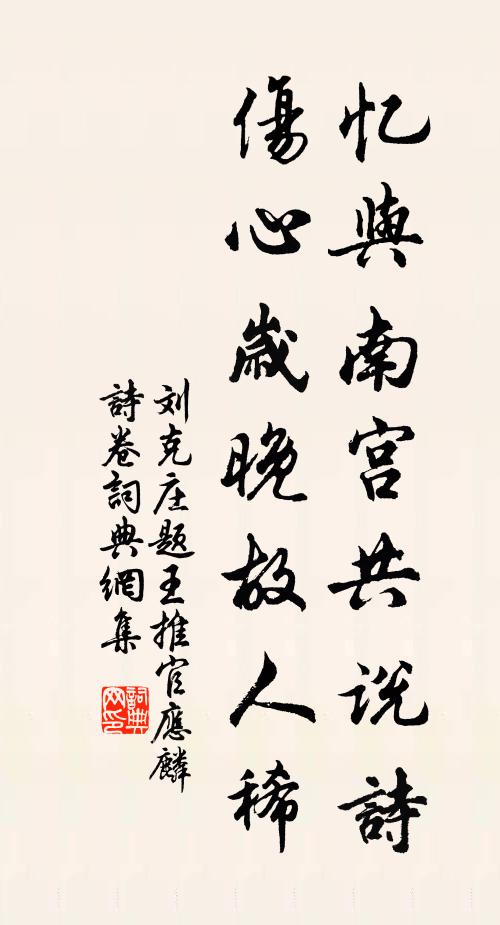 忆與南宫共说詩
傷心歲晚故人稀
刘克庄题王推官應麟
詩卷詞典網集
詞典
网印